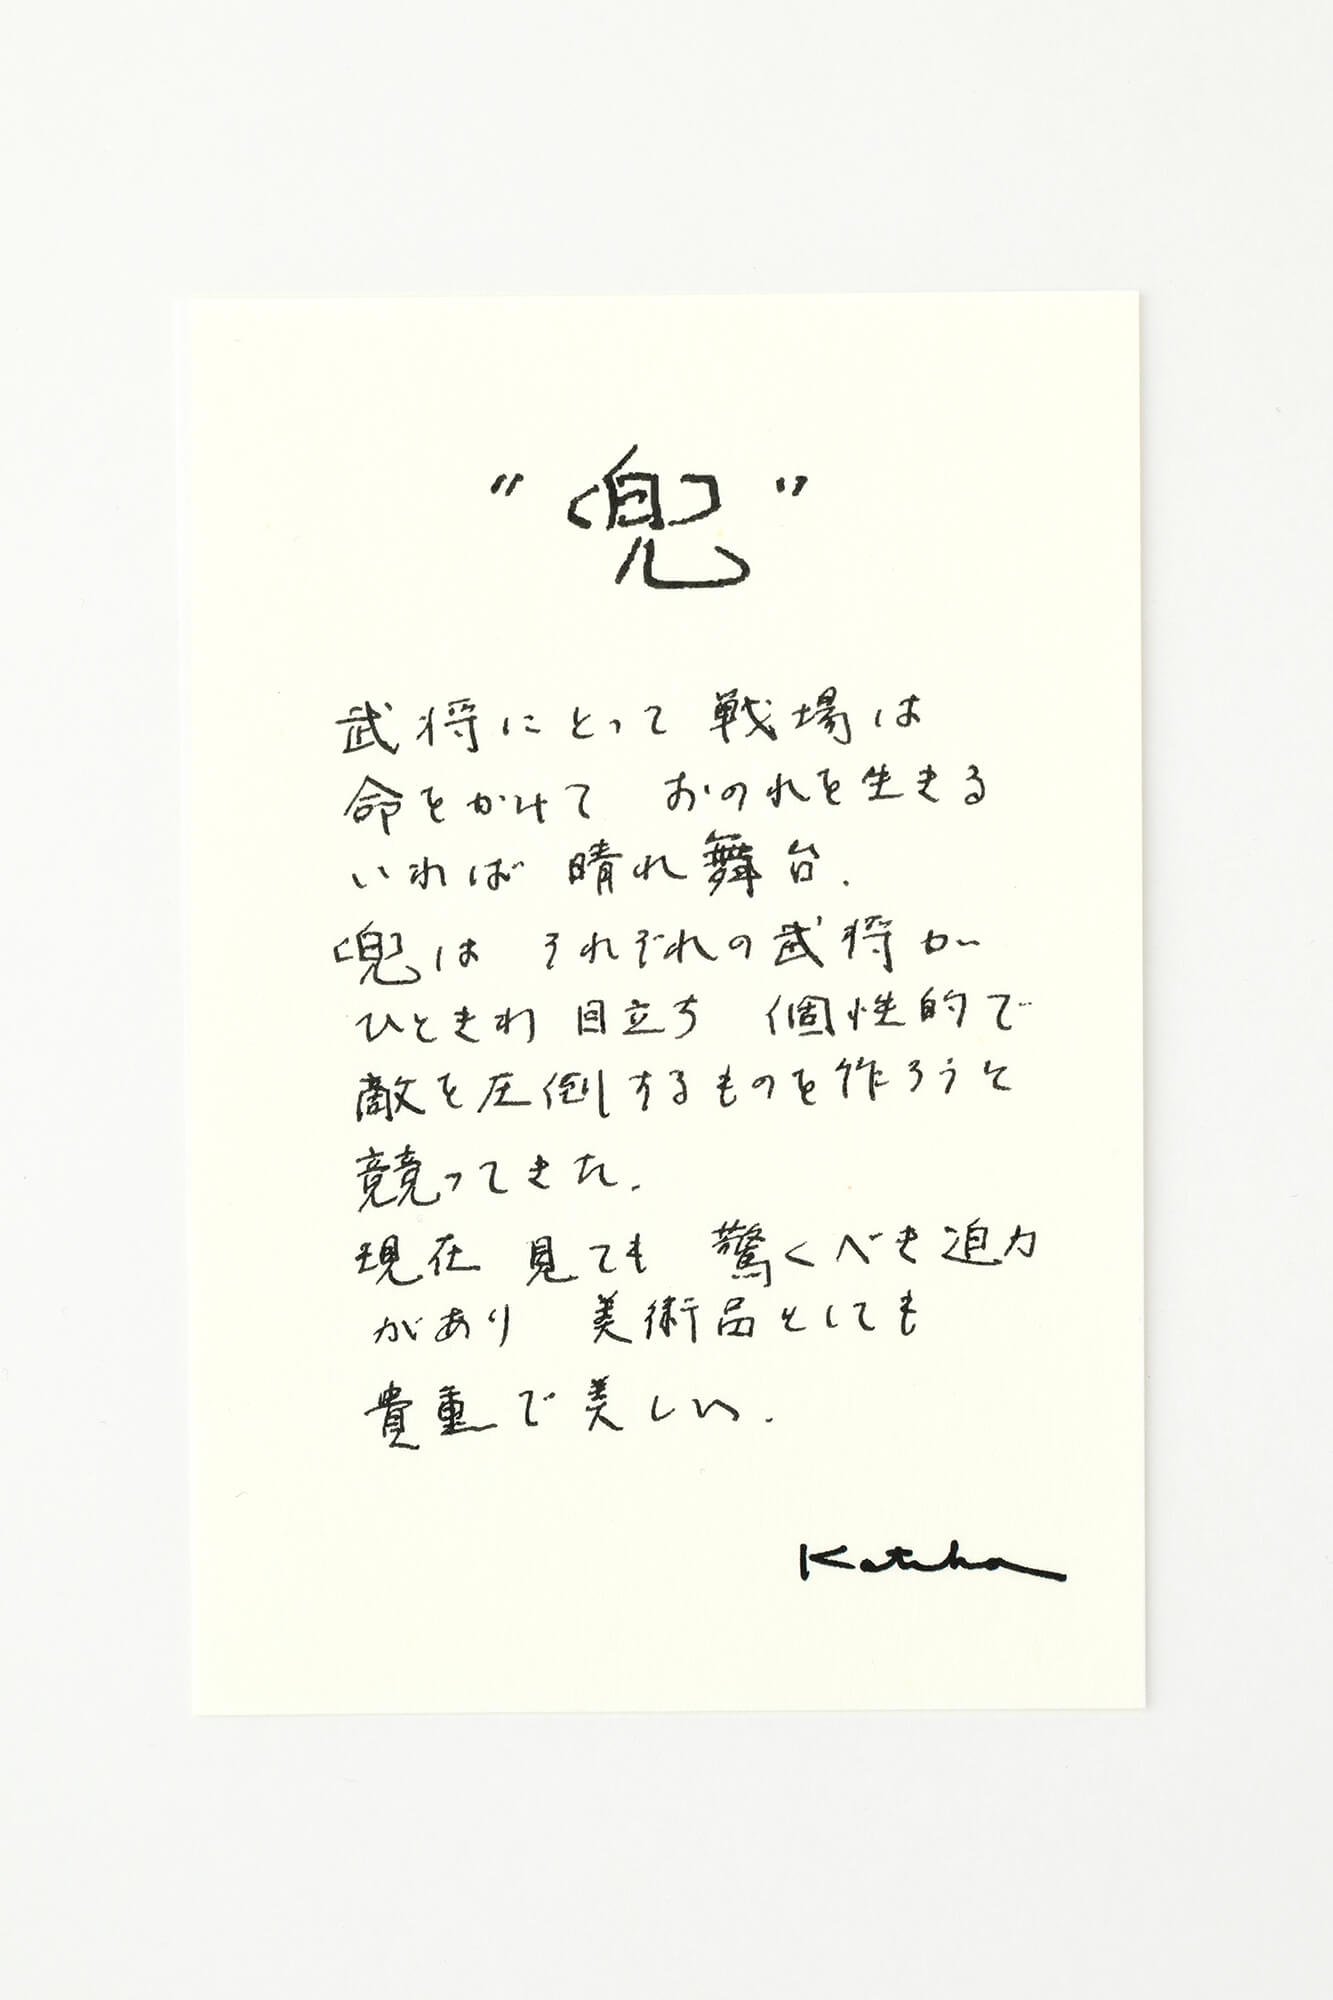 "兜"
武将にとって 戦場は
命をかけて おのれを生きる
いわば 晴れ舞台.
兜は それぞれの武将が
ひときわ 目立ち 個性的で
敵を圧倒するものを作ろうと
競ってきた.
現在 見ても 驚くべき迫力
があり 美術品としても
貴重で美しい.